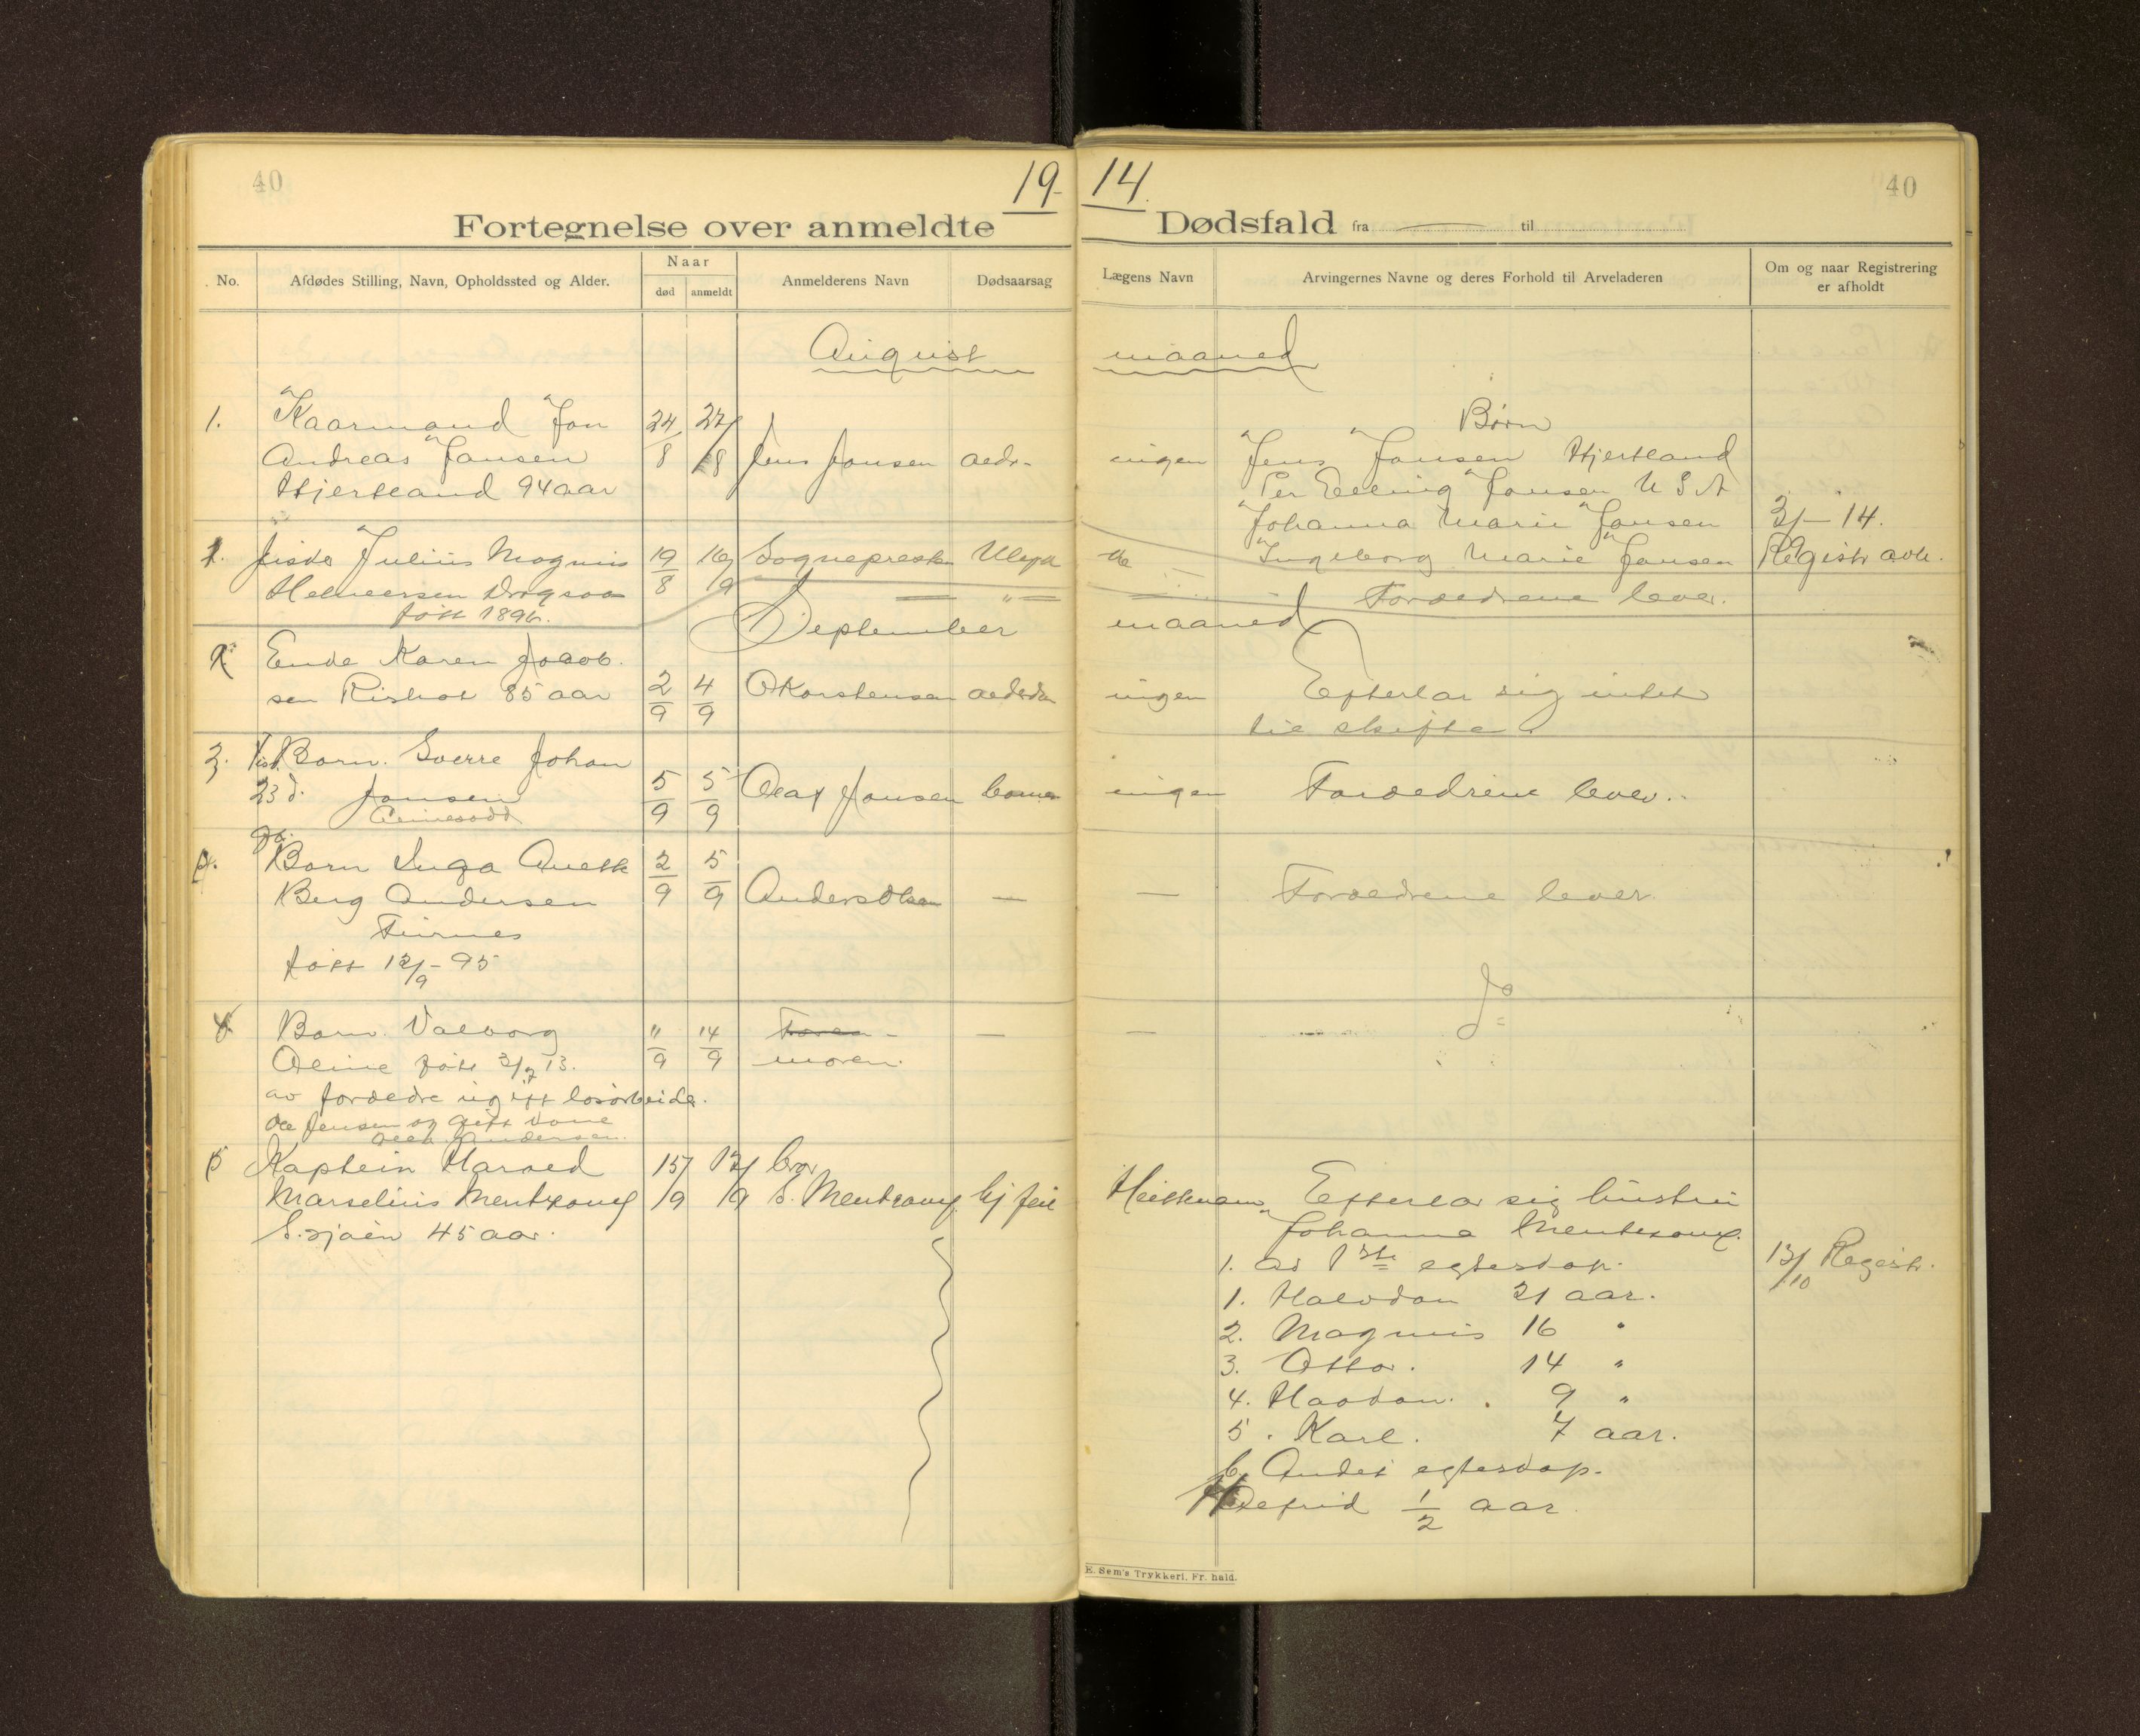 40
19 14.
40
Fortegnelse over anmeldte Dødsfald fra til
No.
Afdødes Stilling, Navn, Opholdssted og Alder.
Naar
død
anmeldt
Anmelderens Navn
Dødsaarsag
Lægens Navn
Arvingernes Navne og deres Forhold til Arveladeren
Om og naar Registrering
er afholdt
August maaned
1. Kaarmand Jon
Andreas Jansen
Hjertland 94 aar
24/8 27/8
Jens Jansen
ingen
Børn
Jens Jansen Hjertland
Per Elling Jansen U S A
Johanna Marie Jansen
Ingeborg Marie Jansen
3/- 14.
Julius Magnus
født 1896.
19/8 16/9
Sognepresten
Forældrene lever.
September maaned
Enke Karen Jacob
sen 85 aar
2/9 4/9
O Karstensen
ingen
Efterlar sig intet
til skifte
3. Barn. Sverre Johan
23 d. Jansen
5/9 5/9
Olaf Jansen
ingen
Forældrene lever.
4. Barn Inga Anette
Berg Andersen
Finnes
født 12/9 - 95
2/9 5/9
Anders Olsen
—
—
Forældrene lever
Barn. Valborg
Oline født 3/7 13.
av forældre ugift løsarbeider
Ole Jensen og
Andersen.
"/9 14/9
moren.
—
—
Jo
5 Kaptein Harald
Marselius Mentzony
45 aar.
15/9 17/9
bror
S. Mentzony
hj feil
Efterlar sig hustru
Johanna Mentzony.
1. av 1ste egteskap.
1. Halvdan 21 aar.
2. Magnus 16 "
3. Otto. 14 "
4. Haakon. 9 "
5. Karl. 7 aar.
b. Andet egteskap.
1/2 aar
13/10 Registr.
E. Sem's Trykkeri, Fr. hald.